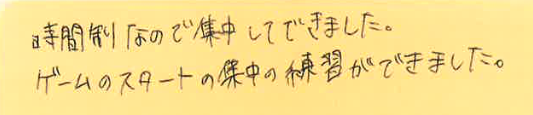 時間制なので集中してできました。
ゲームのスタートの集中の練習ができました。